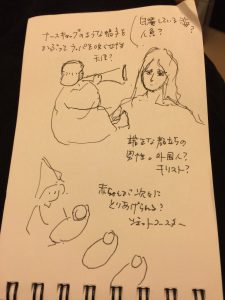 ナースキャップのような帽子を
かぶって ラッパを吹く女性
天使?
目撃している 湖?
人魚?
端正な顔立ちの
男性。外国人?
キリスト?
赤ちゃんが次々に
とりあげられる?
ジェットコースター